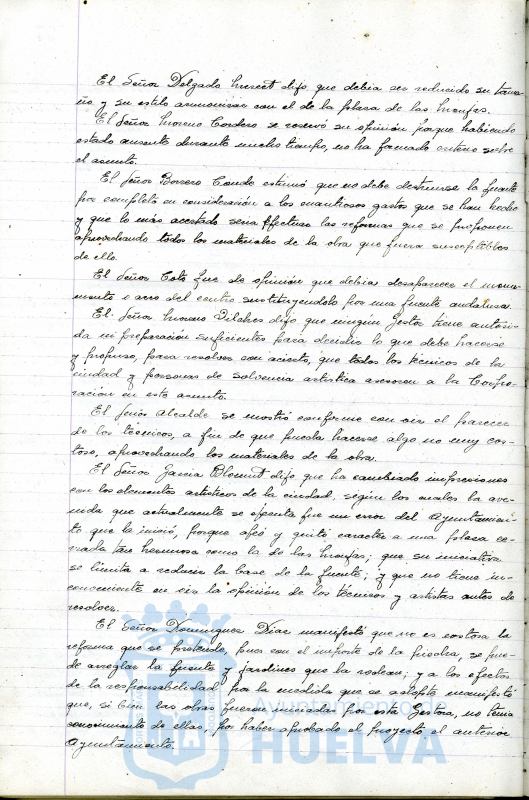 El Señor Delgado Merect dijo que debia ser reducido su tama-
ño y su estilo armonizar con el de la plaza de las Monjas.
El Señor Moreno Cordero se reservó su opinión porque habiendo
estado ausente durante mucho tiempo, no ha formado criterio sobre
el asunto.
El Señor Borrero Conde estimó que no debe destruirse la fuente
por completo en consideración a los cuantiosos gastos que se han hecho
y que lo más acertado seria efectuar las reformas que se proponen
aprovechando todos los materiales de la obra que fuera susceptibles
de ello.
El Señor Coto fue de opinión que debia desaparecer el monu-
mento o aro del centro sustituyendolo por una fuente andaluza.
El Señor Moreno Pilches dijo que ningún Gestor tiene autori-
dad ni preparación suficientes para decidir lo que debe hacerse
y propuso, para resolver con acierto, que todos los técnicos de la
ciudad y personas de solvencia artistica asesoren a la Corpo-
ración en este asunto.
El Señor Alcalde se mostró conforme con oir el parecer
de los técnicos, a fin de que pueda hacerse algo no muy cos-
toso, aprovechando los materiales de la obra.
El Señor Garcia dijo que ha cambiado impresiones
con los elementos artisticos de la ciudad, según los cuales la ave-
nida que actualmente se ejecuta fue un error del Ayuntamien-
to que la inició, porque afeó y quitó caracter a una plaza ce-
rrada tan hermosa como la de las Monjas; que su iniciativa
se limita a reducir la base de la fuente; y que no tiene in-
conveniente en oir la opinión de los técnicos y artistas antes de
resolver.
El Señor Dominguez Diaz manifestó que no es costosa la
reforma que se pretende, pues con el importe de la piedra, se pue-
de arreglar la fuente y jardines que la rodean; y a los efectos
de la responsabilidad por la medida que se adopte manifestó
que, si bien las obras fueron iniciadas por esta Gestora, no tenia
conocimiento de ellas, por haber aprobado el proyecto el anterior
Ayuntamiento.
Ayuntamiento de
HUELVA